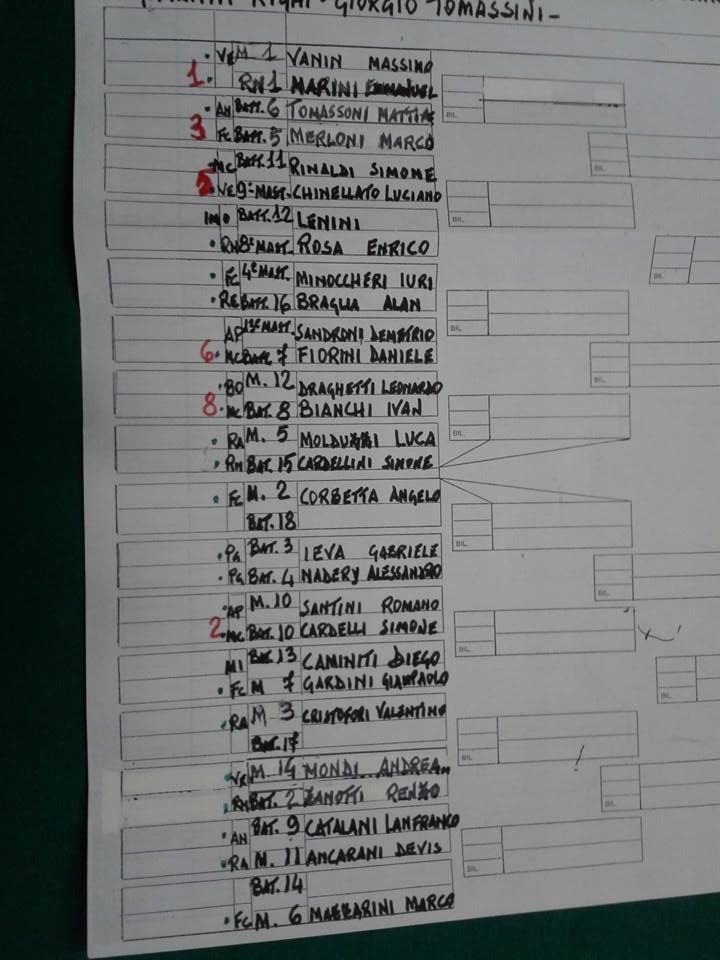 RIGHI - GIORGIO TOMASSINI -
VE M 1 VANIN MASSIMO
1. RN 1 MARINI EMMANUEL
BIL.
AN BATT. 6 TOMASSONI MATTIA
3 FC BATT. 5 MERLONI MARCO
MC BATT. 11 RINALDI SIMONE
5 VE 9ª MAST. CHINELLATO LUCIANO
BIL.
BATT. 12 LENINI
RN 8ª MAST. ROSA ENRICO
BIL.
FC 4ª MATT. MINOCCHERI IURI
RE BATT. 16 BRAGLIA ALAN
BIL.
AP 13ª MAST. SANDRONI DEMETRIO
6 MC BATT. 7 FIORINI DANIELE
BO M. 12 DRAGHETTI LEONARDO
8 MC BAT. 8 BIANCHI IVAN
BIL.
RA M. 5 LUCA
RN BAT. 15 CARDELLINI SIMONE
FC M. 2 CORBETTA ANGELO
BAT. 18
BIL.
PG BAT. 3 IEVA GABRIELE
PG BAT. 4 NADERY ALESSANDRO
BIL.
AP M. 10 SANTINI ROMANO
2 MC BAT. 10 CARDELLI SIMONE
BIL.
MI BAT. 13 CAMINITI DIEGO
FC M 7 GARDINI GIAMPAOLO
BIL.
RA M 3 CRISTOFORI VALENTINO
BAT. 17
BIL.
VR M. 14 MONDI ANDREA
RN BAT. 2 ZANOTTI RENZO
BIL.
AN BAT. 9 CATALANI LANFRANCO
RA M. 11 ANCARANI DEVIS
BIL.
BAT. 14
FC M. 6 MAZZARINI MARCO